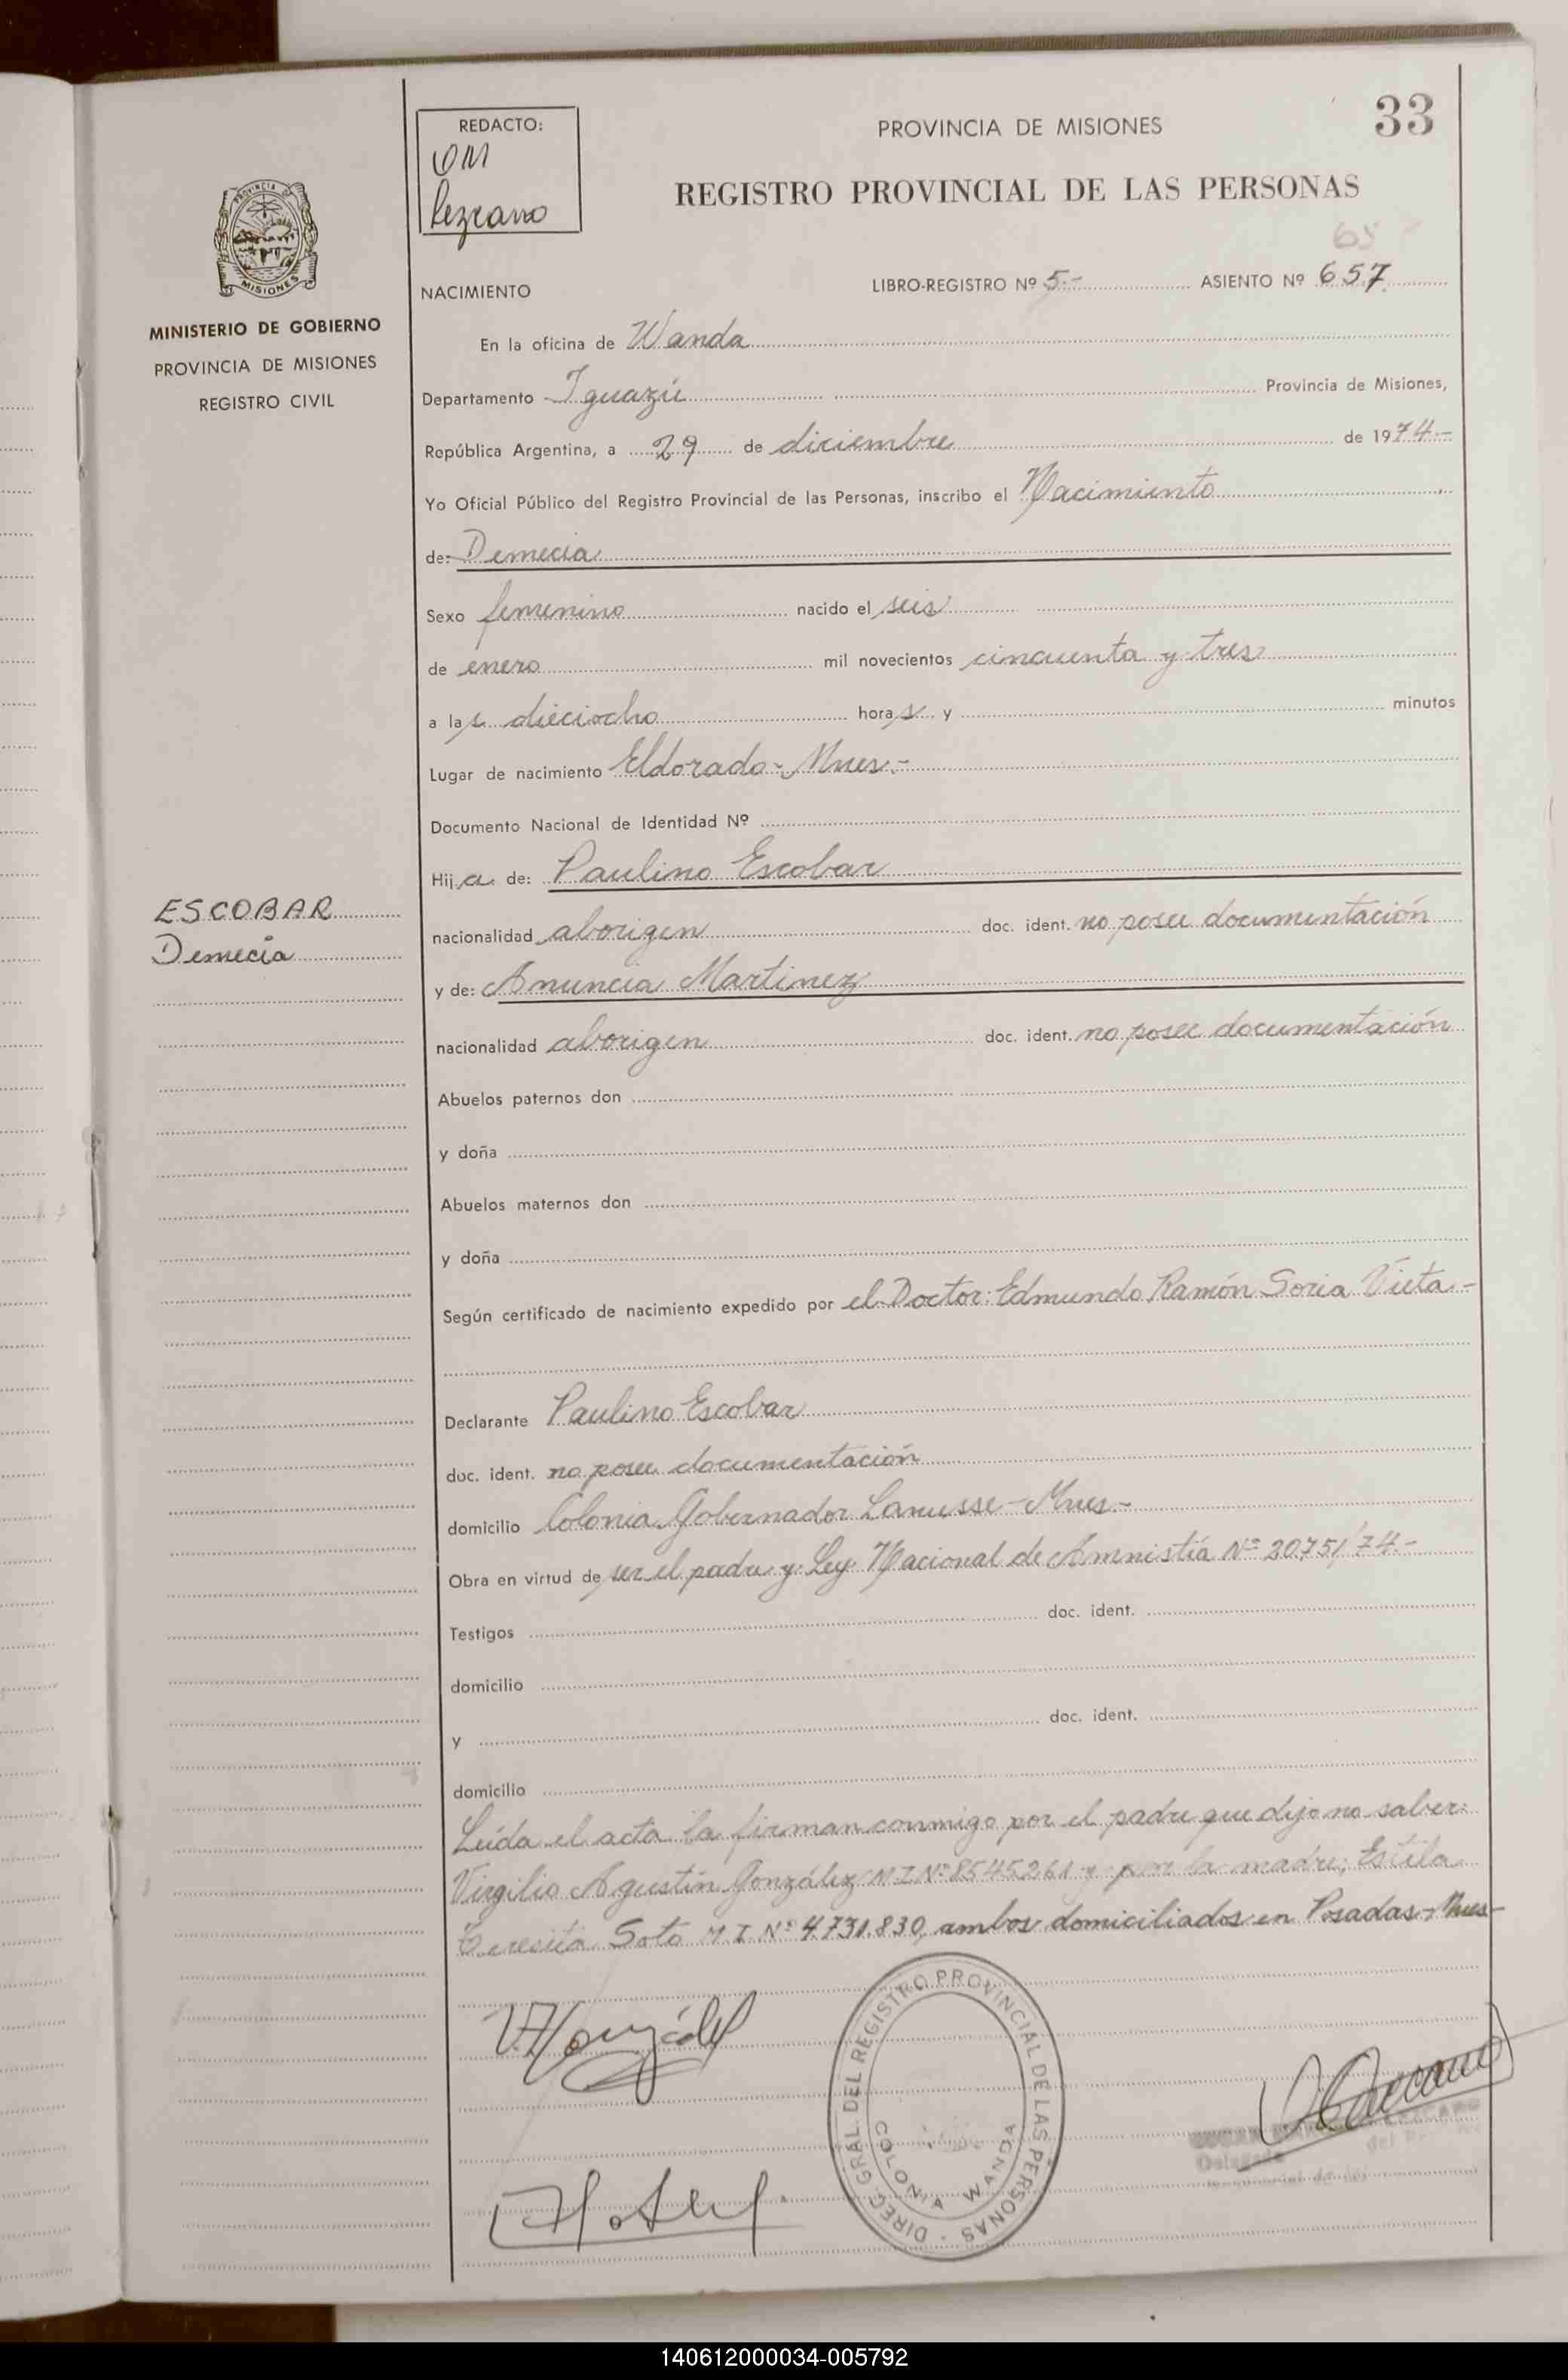 33
REDACTO:
OM
Lezcano
PROVINCIA DE MISIONES
REGISTRO PROVINCIAL DE LAS PERSONAS
PROVINCIA DE
MISIONES
MINISTERIO DE GOBIERNO
PROVINCIA DE MISIONES
REGISTRO CIVIL
65
NACIMIENTO LIBRO-REGISTRO Nº 5.- ASIENTO Nº 657
En la oficina de Wanda
Departamento Iguazú Provincia de Misiones,
República Argentina, a 29 de diciembre de 1974.-
Yo Oficial Público del Registro Provincial de las Personas, inscribo el Nacimiento
de: Demecia
Sexo femenino nacido el seis
de enero mil novecientos cincuenta y tres
a las dieciocho horas y minutos
Lugar de nacimiento Eldorado - Mnes.-
Documento Nacional de Identidad Nº
Hija de: Paulino Escobar
ESCOBAR
Demecia
nacionalidad aborigen doc. ident. no posee documentación
y de: Anuncia Martinez
nacionalidad aborigen doc. ident. no posee documentación
Abuelos paternos don
y doña
Abuelos maternos don
y doña
Según certificado de nacimiento expedido por el Doctor: Edmundo Ramón Soria Vieta.-
Declarante Paulino Escobar
doc. ident. no posee documentación
domicilio Colonia Gobernador Lanusse - Mnes.-
Obra en virtud de ser el padre y Ley Nacional de Amnistía Nº 20751/74.-
Testigos doc. ident.
domicilio
y doc. ident.
domicilio
Leída el acta la firman conmigo por el padre que dijo no saber:
Virgilio Agustín González M.I.Nº 8545261 y por la madre; Estila
Teresita Soto M I Nº 4.731.830, ambos domiciliados en Posadas - Mnes-
V.A.González
DIREC. GRAL DEL REGISTRO PROVINCIAL DE LAS PERSONAS -
COLONIA WANDA
140612000034-005792